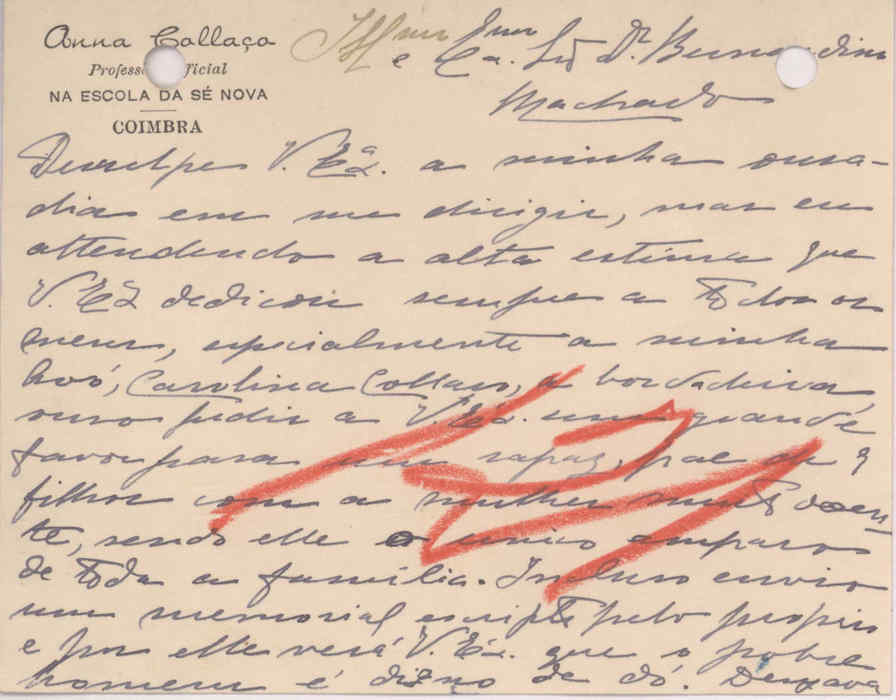 Anna Collaço
Professora Official
NA ESCOLA DA SÉ NOVA
COIMBRA
Illmo Exmo
e Ca. Sr. Dr. Bernardino
Machado
Desculpe V. Exª. a minha ousa-
dia em me dirigir, mas eu
attendendo a alta estima que
V. Exª dedicou sempre a todos os
meus, especialmente a minha
Avó, Carolina Collaço, a bordadeira,
ouso pedir a V. Exª. um grande
favor para um rapaz, pae de 9
filhos com a mulher muito doen-
te, sendo elle o unico amparo
de toda a família. Incluso envio
um memorial escripto pelo proprio
e por elle verá V. Exª. que o pobre
homem é digno de dó. Deixava